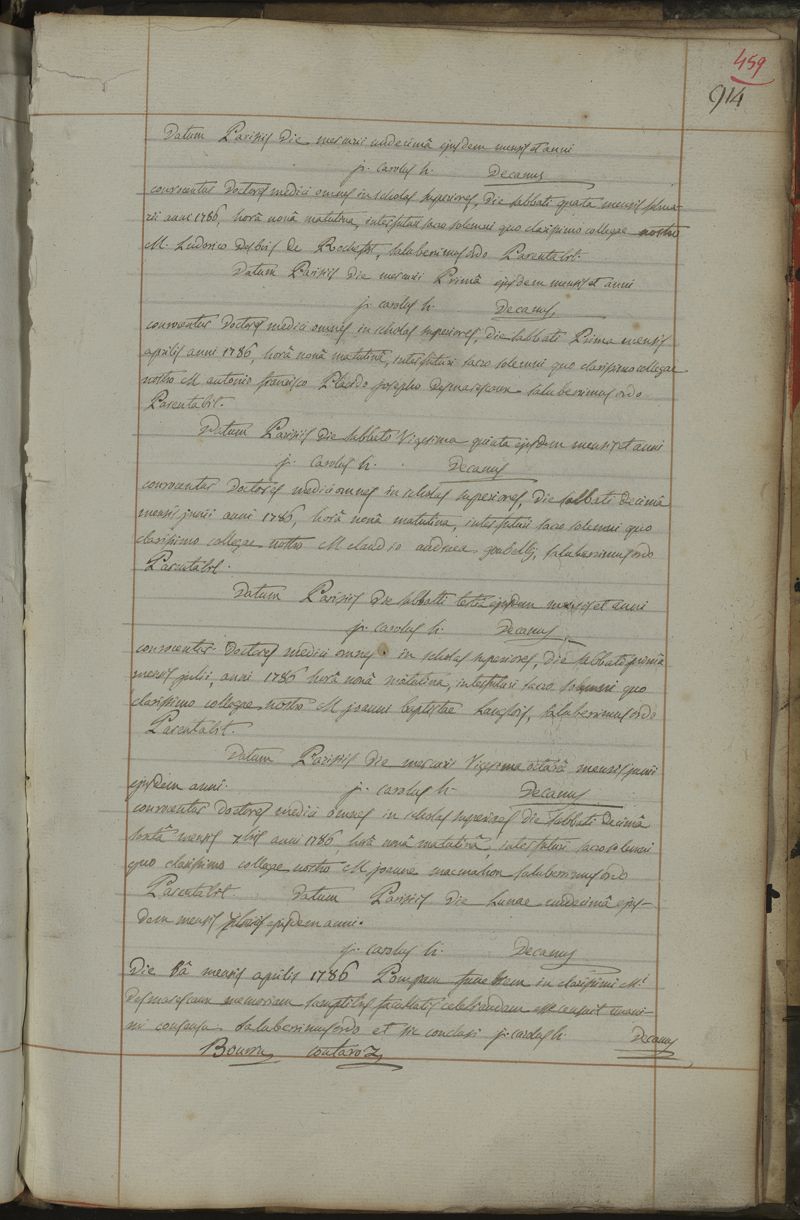 459
914
Datum Parisiis die mercurii undecimâ ejusdem mensis et anni
j. carolus h. Decanus
convocentur Doctores medici omnes in scholas superiores, die sabbati quarta mensis februa-
rii anni 1786, horâ nonâ matutina, interfuturi sacro solemni quo clarissimo collegae nostro
M. Ludovico Desbois de Rochefort, saluberrimus ordo Parentabit.
Datum Parisiis die mercurii Primâ ejusdem mensis et anni
j. carolus h. Decanus
convocentur Doctores medici omnes in scholas superiores, die sabbati Prima mensis
aprilis anni 1786, horâ nonâ matutinâ, interfuturi sacro solemni quo clarissimo collegae
nostro M antonio francisco Placido josepho Desmarescaux saluberrimus ordo
Parentabit.
Datum Parisiis die sabbato Vigesima quinta ejusdem mensis et anni
j. carolus h. Decanus
convocentur Doctores medici omnes in scholas superiores, die sabbati decimâ
mensis junii anni 1786, horâ nonâ matutina, interfuturi sacro solemni quo
clarissimo collegae nostro M claudio andrea goubelly, saluberrimus ordo
Parentabit.
Datum Parisiis die sabbati tertiâ ejusdem mensis et anni
j. carolus h. Decanus
convocentur Doctores medici omnes in scholas superiores, die sabbato primâ
mensis julii, anni 1786 horâ nonâ matutinâ, interfuturi sacro solemni quo
clarissimo collegae nostro M joanni baptistae Langlois, saluberrimus ordo
Parentabit.
Datum Parisiis die mercurii Vigesima octavâ mensis junii
ejusdem anni. j. carolus h. Decanus
convocentur Doctores medici omnes in scholas superiores die sabbati decimâ
sextâ mensis 7bris anni 1786, horâ nonâ matutinâ, interfuturi sacro solemni
quo clarissimo collegae nostro M joanne macmahon saluberrimus ordo
Parentabit. Datum Parisiis die Lunae undecimâ ejus-
dem mensis ejusdem anni.
j. carolus h. Decanus
Die mensis aprilis 1786 Pompam funebrem in clarissimi Mi
Desmarescaux memoriam sumptibus facultatis celebrandam esse censuit unani-
mi consensu saluberrimus ordo et sic conclusi j. carolus h. Decanus
Bourru